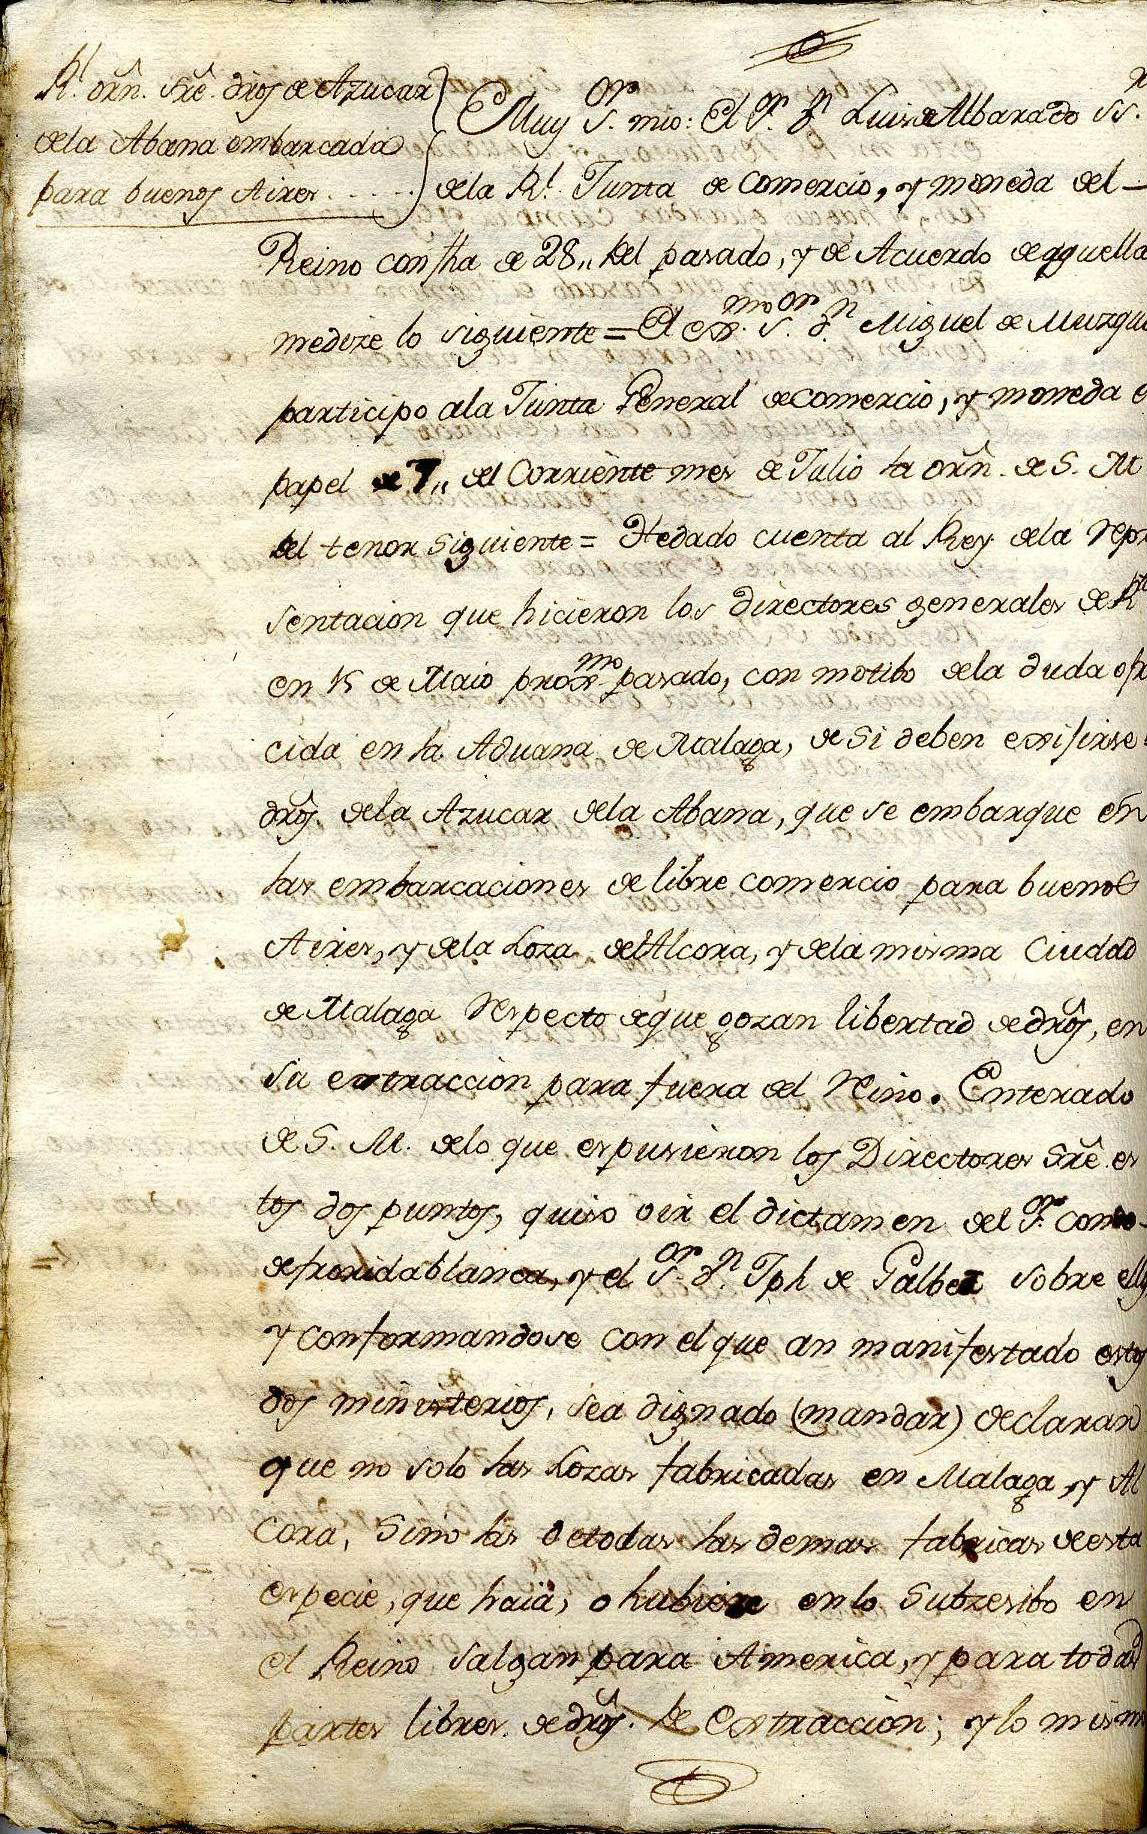 Rl. orn. sre. dros de Azucar
dela Abana embarcada
para buenos Aires
Muy Sor. mio: El Sr. Dn Luis de Albarado SS.
dela Rl. Junta de Comercio, y moneda del
Reino con fha de 28,, del pasado, y de Acuerdo de aquella
medize lo siguiente = El Exmo. Sor. Dn Miguel de Muzqu
participo ala Junta General de comercio, y moneda e
papel de 7,, del Corriente mes de Julio la orn. de S. M
del tenor siguiente = Hedado cuenta al Rey dela repr
sentacion que hicieron los directores generales de Rtas
en 15 de Maio proxmo. pasado, con motibo dela duda ofre
cida en la Aduana de Malaga, de si deben exijirse
dros. dela Azucar dela Abana, que se embarque en
las embarcaciones de libre comercio para buenos
Aires, y dela Loza de Alcora, y dela misma Ciudad
de Malaga respecto de que gozan libertad de dros, en
su extraccion para fuera del reino. Enterado
de S. M. delo que expusieron los Directores sre. es
tos dos puntos, quiso oir el dictamen del Sr. Conde
de froridablanca, y el Sor. Dn. Jph de Galbez sobre ello
y conformandose con el que an manifestado estos
dos ministerios, sea dignado (mandar) declarar
que no solo las Lozas fabricadas en Malaga, y Al
cora, sino las de todas las demas fabricas de esta
especie, que haia, o hubiere en lo subzesibo en
el Reino salgan para America, y para todas
partes libres de dros. de Extraccion; y lo mism